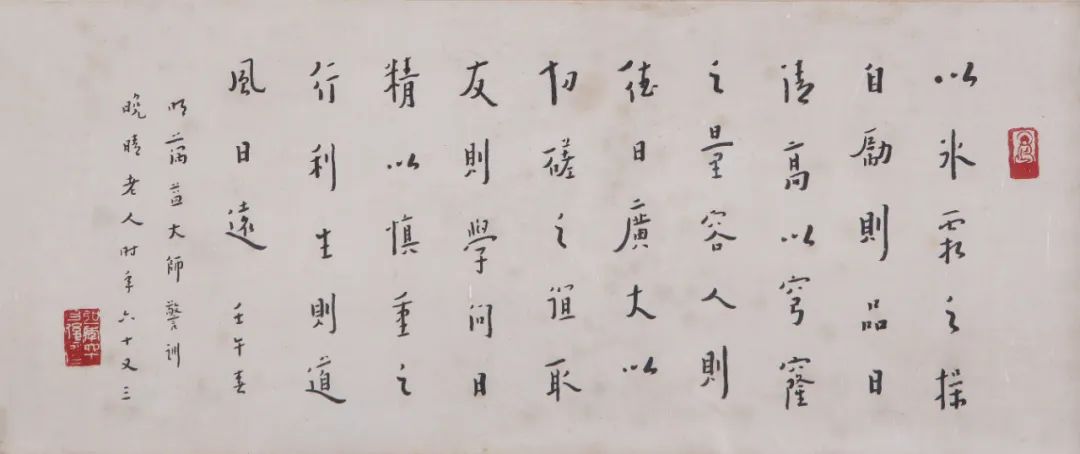 以冰霜之操
自勵則品日
清高以穹窿
之量容人則
德日廣大以
切磋之誼取
友則學問日
精以慎重之
行利生則道
風日遠 壬午春
明蕅益大師警訓
晚晴老人时年六十又三